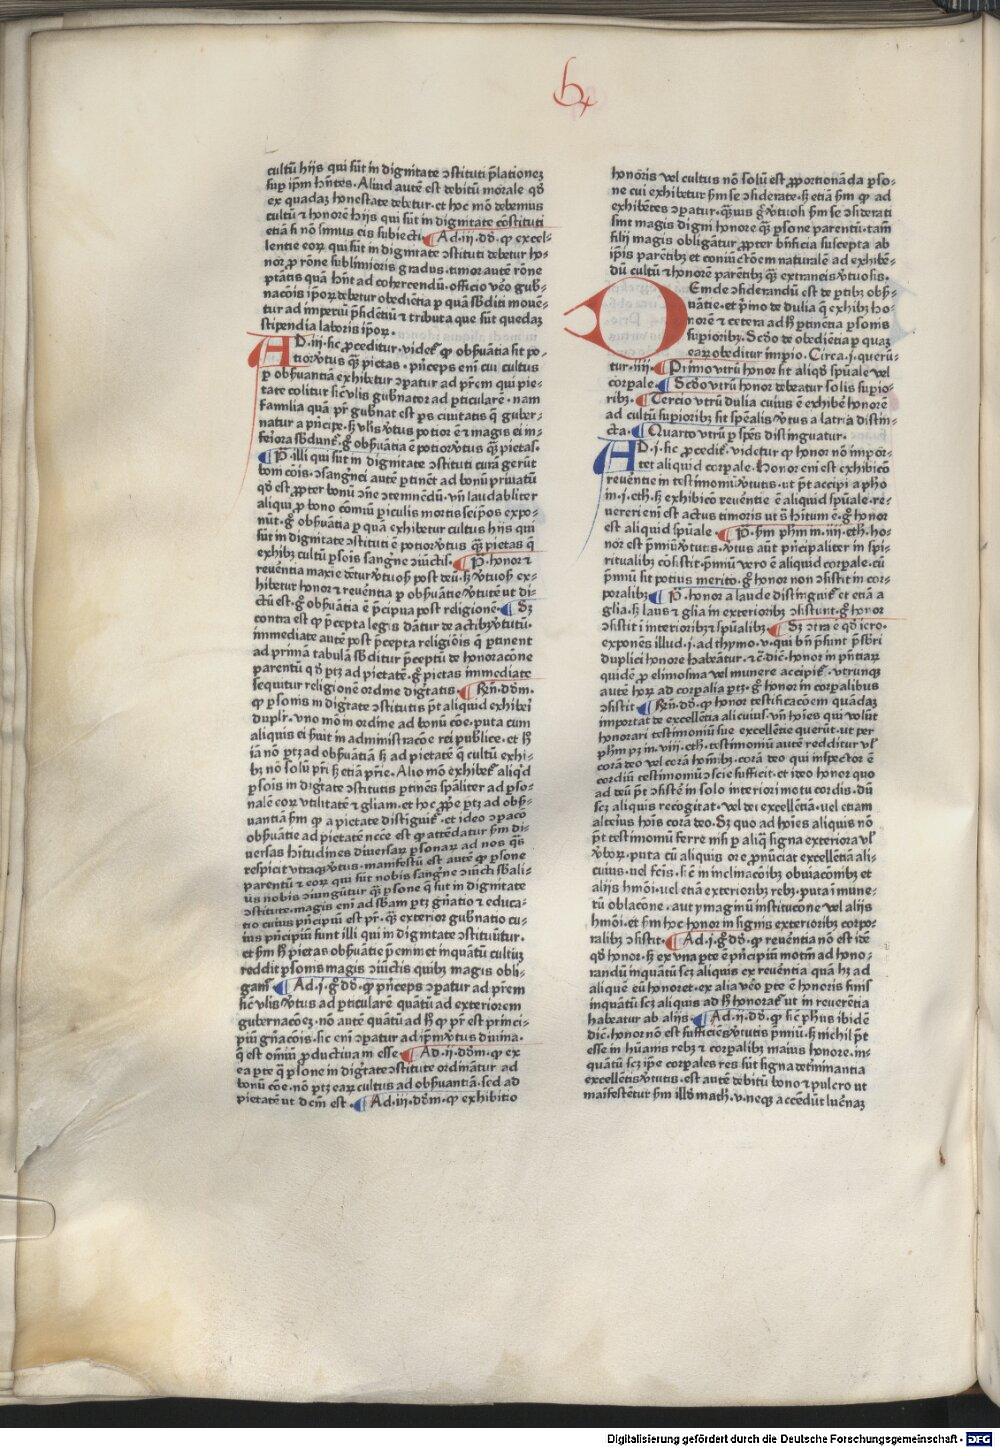 cultū hijs qui sūt in dignitate ɔstituti p̄lationez
suꝑ ip̄m hn̄tes. Aliud autē est debitū morale qḋ
ex quadaꝫ honestate debetur. et hoc mō debemus
cultū ⁊ honorē hijs qui sūt in dignitate cōstituti
etiā si nō simus eis subiecti. Ad .iij. dḋ. ꝙ excel-
lentie eoꝝ qui sūt in dignitate ɔstituti debetur ho-
nor ꝓ rōne sublimioris gradus. timor autē rōne
ptātis quā hn̄t ad cohercendū. officio ṽo gub̄-
nacōis ip̄oꝝ debetur obediētia ꝑ quā sb̄diti mouē-
tur ad imperiū p̄sidētiū ⁊ tributa que sūt quedaꝫ
stipendia laboris ip̄oꝝ.
AD .iij. sic ꝓceditur. videt̄ ꝙ obs̄uātia sit po-
tior ṽtus qꝫ pietas. p̄nceps eni cui cultus
ꝑ obs̄uantiā exhibetur ɔpatur ad pr̄em qui pie-
tate colitur sic̄ vl̄is gub̄nator ad ꝑticularē. nam
familia quā pr̄ gub̄nat est ps ciuitatis q̄ guber-
natur a pn̄cipe. sꝫ vl̄is ṽtus potior ē ⁊ magis ei in-
feriora sb̄dunt̄. g̊ obs̄uātia ē potior ṽtus qꝫ pietas.
P̄. illi qui sūt in dignitate ɔstituti curā gerūt
boni cōis. ɔsangnei autē ꝑtinēt ad bonū priuatū
qḋ est ꝓpter bonū ɔ̄ne ɔtemnēdū. vn̄ laudabliter
aliqui ꝓ bono cōmū ꝑiculis mortis seip̄os expo-
nūt. g̊ obs̄uātia ꝑ quā exhibetur cultus hijs qui
sūt in dignitate ɔstituti ē potior ṽtus qꝫ pietas q̄
exhibꝫ cultū ꝑsoīs sangne ɔiūctis. P̄. honor ⁊
reuēntia maxīe det̄ur ṽtuosis post deū. sꝫ ṽtuosis ex-
hibetur honor ⁊ reuēntia ꝑ obs̄uātie ṽtutē ut di-
ctū est. g̊ obs̄uātia ē p̄cipua post religionē. Sꝫ
contra est ꝙ p̄cepta legis dātur de actibꝫ ṽtutū.
immediate autē post p̄cepta religiōis q̄ ꝑtinent
ad primā tabulā sb̄ditur p̄ceptū de honoracōne
parentū qḋ ꝑtꝫ ad pietatē. g̊ pietas immediate
sequitur religionē ordine dig̅tatis. Rn̄. dōm.
ꝙ ꝑsonis in dig̅tate ɔstitutis pt̄ aliquid exhiberi
duplr̄. vno mō in ordine ad bonū cōe. puta cum
aliquis ei s̄uit in administracōe rei publice. et hꝭ
iā nō ꝑtꝫ ad obs̄uātiā sꝫ ad pietatē q̄ cultū exhi-
bꝫ nō solū pr̄i sꝫ etiā pr̄ie. Alio mō exhibet̄ aliqḋ
ꝑsoīs in dig̅tate ɔstitutis ꝑtinēs sp̄aliter ad ꝑso-
nalē eoꝝ vtilitatē ⁊ gliam. et hoc ꝓp̄e ꝑtꝫ ad obs̄-
uantiā sm̄ ꝙ a pietate distiguit̄. et ideo ɔpacō
obs̄uātie ad pietatē neccē est ꝙ attēdatur sm̄ di-
uersas hitudines diuersaꝝ ꝑsonaꝝ ad nos q̄s
respicit vtraqꝫ ṽtus. manifestū est autē ꝙ ꝑsone
parentū ⁊ eoꝝ qui sūt nobis sangne ɔiūcti sb̄ali-
us nobis ɔiungūtur qꝫ ꝑsone q̄ sūt in dignitate
ɔstitute. magis eni ad sb̄am ꝑtꝫ gn̄atio ⁊ educa-
tio cuius pn̄cipiū est pr̄. qꝫ exterior gub̄natio cu-
ius pn̄cipiū sunt illi qui in dignitate ɔstituūtur.
et sm̄ hꝭ pietas obs̄uātie p̄emīet inquātū cultuꝫ
reddit ꝑsonis magis ɔiūctis quibꝫ magis obli-
gam̄. Ad .j. g̊ dḋ. ꝙ pn̄ceps ɔpatur ad pr̄em
sic̄ vl̄is ṽtus ad ꝑticularē quātū ad exteriorem
gubernacōeꝫ. nō autē quātū ad hꝭ ꝙ pr̄ est princi-
piū gn̄acōis. sic eni ɔpatur ad ip̄m ṽtus diuina.
q̄ est om̄iū ꝓductiua in esse. Ad .ij. dōm. ꝙ ex
ea ꝑte q̄ ꝑsone in dig̅tate ɔstitute ordināntur ad
bonū cōe. nō ꝑtꝫ eaꝝ cultus ad obs̄uantiā. sed ad
pietatē ut dc̄m est. Ad .iij. dōm. ꝙ exhibitio
honoris vel cultus nō solū est ꝓportionāda ꝑso-
ne cui exhibetur sm̄ se ɔsiderate. sꝫ etiā sm̄ ꝙ ad
exhibētes ɔpatur. qꝫuis g̊ ṽtuosi sm̄ se ɔsiderati
sint magis digni honore qꝫ ꝑsone parentū. tam̄
filij magis obligātur ꝓpter bn̄ficia suscepta ab
ip̄is parētibꝫ et coniūctōem naturalē ad exhibē-
dū cultū ⁊ honorē parētibꝫ qꝫ extraneis ṽtuosis.
DEinde ɔsiderandū est de ꝑtibꝫ obs̄-
uātie. et pͥmo de dulia q̄ exhibꝫ ho-
norē ⁊ cetera ad hꝭ ꝑtinētia ꝑsonis
suꝑioribꝫ. Scḋo de obediētia ꝑ quaꝫ
eaꝝ obeditur impio. Circa .j. querū-
tur .iiij. Primo vtrū honor sit aliqḋ sp̄uale vel
corꝑale. Scḋo vtrū honor debeatur solis suꝑio-
ribꝫ. Tercio vtrū dulia cuius ē exhibē honorē
ad cultū suꝑioribꝫ sit sp̄ealis ṽtus a latria distin-
cta. Quarto vtrū ꝑ spēs distinguatur.
AD .j. sic ꝓcedit̄. videtur ꝙ honor nō impōr-
tet aliquid corꝑale. Honor eni est exhibicō
reuēntie in testimoniū ṽtutis. ut pt̄ accipi a pho
in .j. eth. sꝫ exhibicō reuēntie ē aliquid sp̄uale. re-
uereri eni est actus timoris ut s̄ hitum ē. g̊ honor
est aliquid sp̄uale. P̄. sm̄ phm in .iiij. eth. ho-
nor est pͥmiū ṽtutis. ṽtus aūt pn̄cipaliter in spi-
ritualibꝫ cōsistit. pͥmiū vero ē aliquid corꝑale. cū
pͥmiū sit potius merito. g̊ honor non ɔsistit in cor-
poralibꝫ. P̄. honor a laude distinguit̄ et etiā a
gl̄ia. sꝫ laus ⁊ gl̄ia in exterioribꝫ ɔsistunt. g̊ honor
ɔsistit ī interioribꝫ ⁊ sp̄ualibꝫ. Sꝫ ɔtra ē qḋ iero.
exponēs illud .j. ad thymo .v. qui bn̄ p̄sunt p̄sbr̄i
duplici honore habeātur. ⁊c̄. dīc. honor in pn̄tiaꝝ
quidē ꝓ elimosina vel munere accipit̄. vtrunqꝫ
autē hoꝝ ad corꝑalia ꝑtꝫ. g̊ honor in corꝑalibus
ɔsistit. Rn̄. dḋ. ꝙ honor testificacōem quādaꝫ
importat de excellētia alicuius. vn̄ hoīes qui volūt
honorari testimoniū sue excellētie querūt. ut per
phm pꝫ in .viij. eth. testimoniū autē redditur vl̄
corā deo vel corā hoībꝫ. corā deo qui inspector ē
cordiū testimoniū ɔscīe sufficit. et ideo honor quo
ad deū pt̄ ɔsistē in solo interiori motu cordis. dū
scꝫ aliquis recogitat. vel dei excellētiā. vel etiam
alterius hoīs corā deo. Sꝫ quo ad hoīes aliquis nō
pt̄ testimoniū ferre nisi ꝑ aliq̄ signa exteriora vl̄
ṽboꝝ. puta cū aliquis ore ꝓnūciat excellētiā ali-
cuius. vel fcīs. sic̄ in inclinacōibꝫ obuiacōibꝫ et
alijs hmōi. vel etiā exterioribꝫ rebꝫ. puta ī mune-
rū oblacōne. aut ymaginū institucōne vel alijs
hmōi. et sm̄ hoc honor in signis exterioribꝫ corpo-
ralibꝫ ɔsistit. Ad .j. g̊ dḋ. ꝙ reuēntia nō est idē
qḋ honor. sꝫ ex vna ꝑte ē pn̄cipiū motiuū ad hono-
randū inquātū scꝫ aliquis ex reuentia quā hꝫ ad
aliquē eū honoret. ex alia ṽo ꝑte ē honoris finis
inquātū scꝫ aliquis ad hꝭ honorat̄ ut in reuerētia
habeatur ab alijs. Ad .ij. dḋ. ꝙ sic̄ phus ibidē
dīc. honor nō est sufficiēs ṽtutis pͥmiū. sꝫ nichil pt̄
esse in hūanis rebꝫ ⁊ corꝑalibꝫ maius honore. in-
quātū scꝫ ip̄e corꝑales res sūt signa det̄minantia
excellētis ṽtutis. est autē debitū bono ⁊ pulcro ut
manifestētur sm̄ illḋ math̄ .v. neqꝫ accēdūt lucernaꝫ
Digitalisierung gefördert durch die Deutsche Forschungsgemeinschaft - DFG